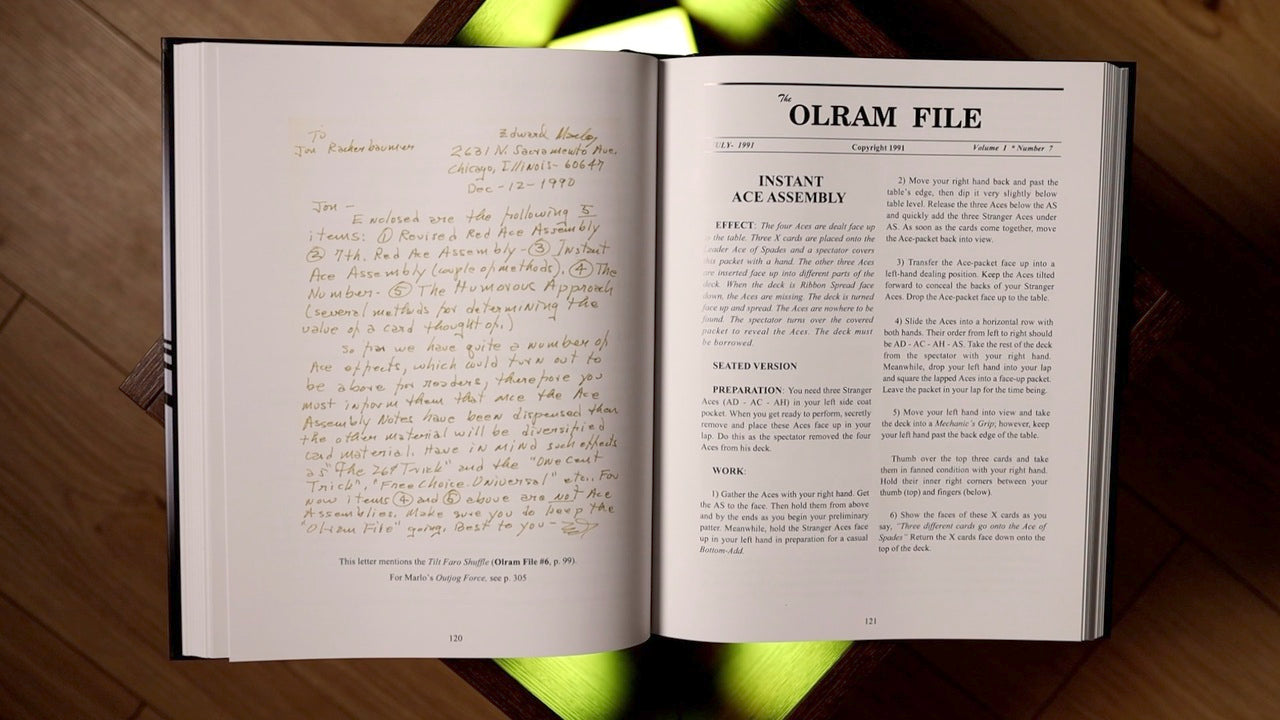 To
Jon Rackerbaumer
Edward Marlo,
2631 N. Sacramento Ave.
Chicago, Illinois- 60647
Dec-12-1990
Jon -
Enclosed are the following 5
items: ① Revised Red Ace Assembly
② 7th. Red Ace Assembly- ③ Instant
Ace Assembly (couple of methods). ④ The
Number- ⑤ The Humorous Approach
(several methods for determining the
value of a card thought of.)
So far we have quite a number of
Ace effects, which could turn out to
be above for readers, therefore you
must inform them that once the Ace
Assembly Notes have been dispensed then
the other material will be diversified
card material. Have in mind such effects
as "The 26th Trick" and the "One Cent
Trick", "Free Choice Universal" etc.. For
now items ④ and ⑤ above are not Ace
Assemblies. Make sure you do keep the
"Olram File" going. Best to you -
This letter mentions the Tilt Faro Shuffle (Olram File #6, p. 99).
For Marlo's Outjog Force, see p. 305
120
The
OLRAM FILE
ULY- 1991 Copyright 1991 Volume 1 * Number 7
INSTANT
ACE ASSEMBLY
EFFECT: The four Aces are dealt face up
the table. Three X cards are placed onto the
Leader Ace of Spades and a spectator covers
this packet with a hand. The other three Aces
are inserted face up into different parts of the
deck. When the deck is Ribbon Spread face
down, the Aces are missing. The deck is turned
face up and spread. The Aces are nowhere to be
found. The spectator turns over the covered
packet to reveal the Aces. The deck must
be borrowed.
SEATED VERSION
PREPARATION: You need three Stranger
Aces (AD - AC - AH) in your left side coat
pocket. When you get ready to perform, secretly
remove and place these Aces face up in your
lap. Do this as the spectator removed the four
Aces from his deck.
WORK:
1) Gather the Aces with your right hand. Get
the AS to the face. Then hold them from above
and by the ends as you begin your preliminary
patter. Meanwhile, hold the Stranger Aces face
up in your left hand in preparation for a casual
Bottom-Add.
2) Move your right hand back and past the
table's edge, then dip it very slightly below
table level. Release the three Aces below the AS
and quickly add the three Stranger Aces under
AS. As soon as the cards come together, move
the Ace-packet back into view.
3) Transfer the Ace-packet face up into a
left-hand dealing position. Keep the Aces tilted
forward to conceal the backs of your Stranger
Aces. Drop the Ace-packet face up to the table.
4) Slide the Aces into a horizontal row with
both hands. Their order from left to right should
be AD - AC - AH - AS. Take the rest of the deck
from the spectator with your right hand.
Meanwhile, drop your left hand into your lap
and square the lapped Aces into a face-up packet.
Leave the packet in your lap for the time being.
5) Move your left hand into view and take
the deck into a Mechanic's Grip; however, keep
your left hand past the back edge of the table.
Thumb over the top three cards and take
them in fanned condition with your right hand.
Hold their inner right corners between your
thumb (top) and fingers (below).
6) Show the faces of these X cards as you
say, "Three different cards go onto the Ace of
Spades" Return the X cards face down onto the
top of the deck.
121